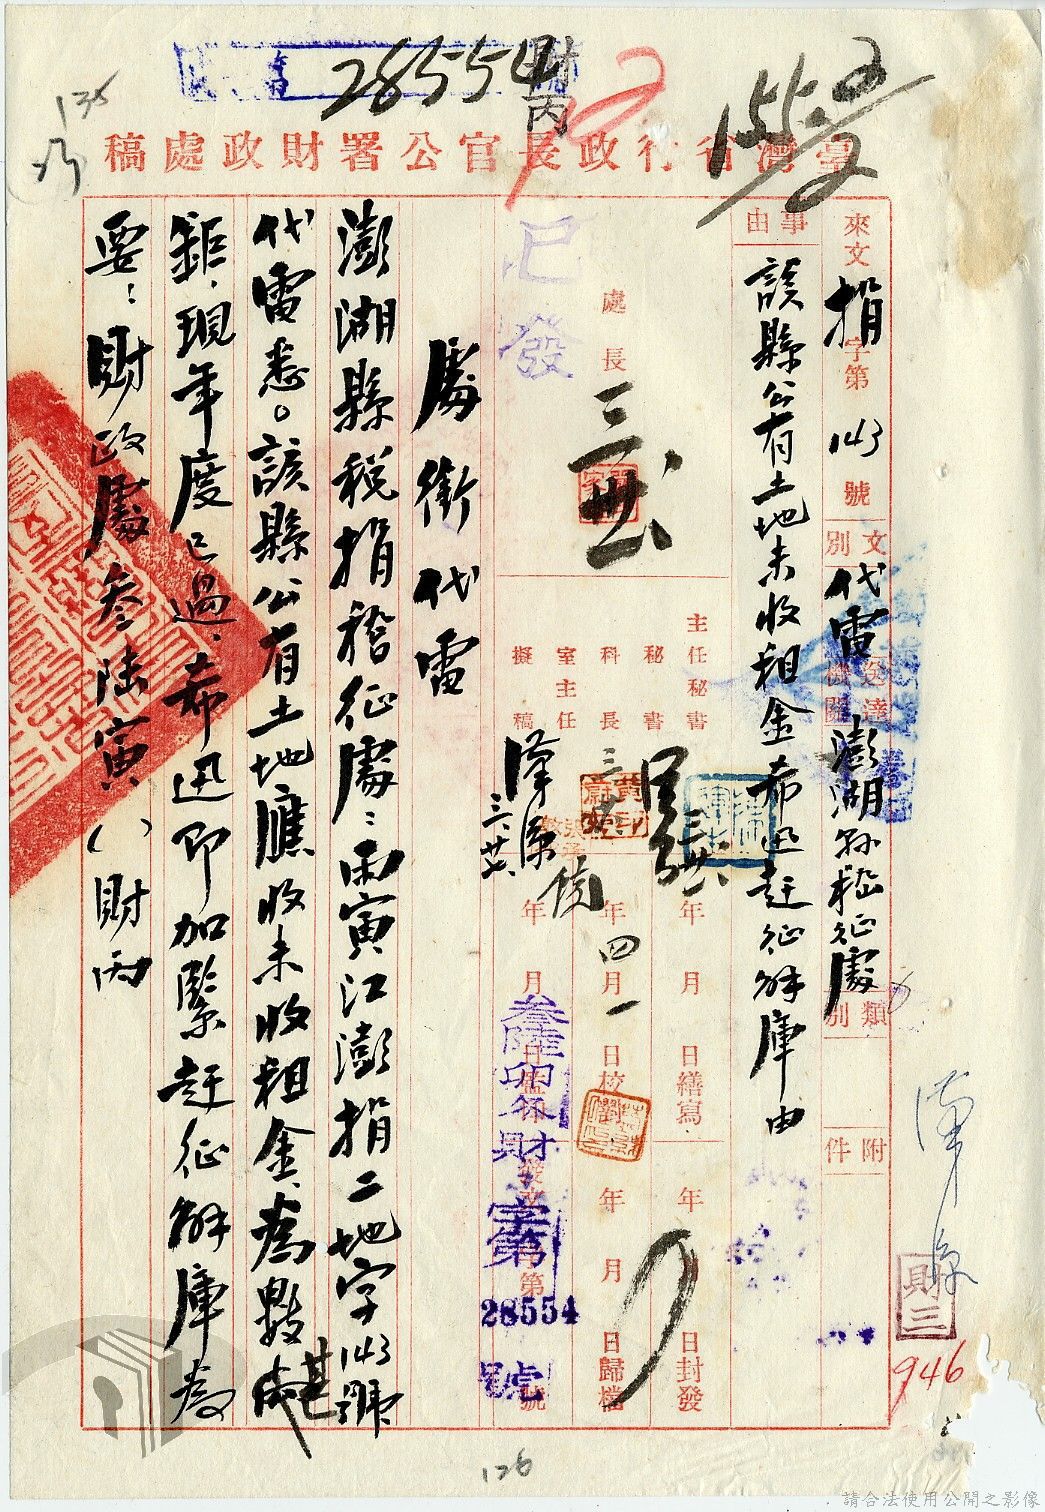 28554
財
丙
臺灣省行政長官公署財政處稿
來文 捐字第143號
文別 代電
送達機關 澎湖縣稅征處
類別
附件
事由
該縣公有土地未收租金希迅赶征解庫由
處長
三
已發
主任秘書
秘書
科長
室主任
擬稿
漢源
三、廿七
年 月 日繕寫
年四月一日校
年 月 日蓋印
年 月 日封發
年 月 日歸檔
發文 字第 號
叁陸卯 財 字第
28554
號
處銜代電
澎湖縣稅捐稽征處：丙寅江澎捐二地字143號
代電悉。該縣公有土地應收未收租金、為數甚
鉅、現年度已過、希迅即加緊赶征解庫為
要：財政處叁陸寅（）財丙
財三
946
136
126
請合法使用公開之影像